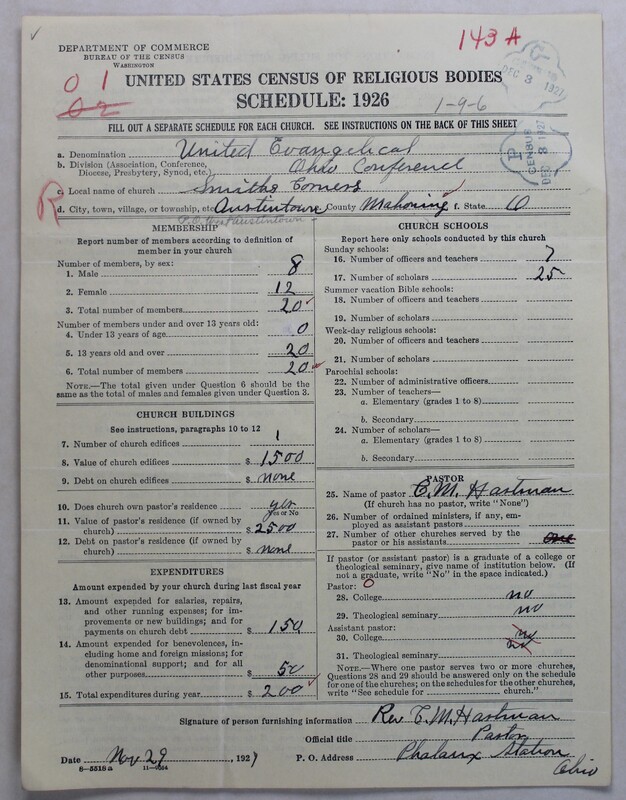 143 A
DEPARTMENT OF COMMERCE
BUREAU OF THE CENSUS
WASHINGTON
DEC 3 1927
0 1
02
UNITED STATES CENSUS OF RELIGIOUS BODIES
SCHEDULE: 1926
1-9-6
FILL OUT A SEPARATE SCHEDULE FOR EACH CHURCH. SEE INSTRUCTIONS ON THE BACK OF THIS SHEET
P CENSUS DEC 3 1927
a. Denomination United Evangelical
b. Division (Association, Conference, Diocese, Presbytery, Synod, etc.) Ohio Conference
c. Local name of church Smiths Corners
R
d. City, town, village, or township, etc. Austintown County Mahoning f. State O
MEMBERSHIP
Report number of members according to definition of
member in your church
Number of members, by sex:
1. Male 8
2. Female 12
3. Total number of members 20
Number of members under and over 13 years old:
4. Under 13 years of age 0
5. 13 years old and over 20
6. Total number of members 20
NOTE.—The total given under Question 6 should be the
same as the total of males and females given under Question 3.
CHURCH BUILDINGS
See instructions, paragraphs 10 to 12
7. Number of church edifices 1
8. Value of church edifices $ 1500
9. Debt on church edifices $ none
10. Does church own pastor's residence yes
Yes or No
11. Value of pastor's residence (if owned by
church) $ 2500
12. Debt on pastor's residence (if owned by
church) $ none
EXPENDITURES
Amount expended by your church during last fiscal year
13. Amount expended for salaries, repairs,
and other running expenses; for im-
provements or new buildings; and for
payments on church debt $ 150
14. Amount expended for benevolences, in-
cluding home and foreign missions; for
denominational support; and for all
other purposes $ 50
15. Total expenditures during year $ 200
CHURCH SCHOOLS
Report here only schools conducted by this church
Sunday schools:
16. Number of officers and teachers 7
17. Number of scholars 25
Summer vacation Bible schools:
18. Number of officers and teachers
19. Number of scholars
Week-day religious schools:
20. Number of officers and teachers
21. Number of scholars
Parochial schools:
22. Number of administrative officers
23. Number of teachers—
a. Elementary (grades 1 to 8)
b. Secondary
24. Number of scholars—
a. Elementary (grades 1 to 8)
b. Secondary
PASTOR
25. Name of pastor C. M. Hartman
(If church has no pastor, write "None")
26. Number of ordained ministers, if any, em-
ployed as assistant pastors
27. Number of other churches served by the
pastor or his assistants one
If pastor (or assistant pastor) is a graduate of a college or
theological seminary, give name of institution below. (If
not a graduate, write "No" in the space indicated.)
Pastor: 0
28. College no
29. Theological seminary no
Assistant pastor:
30. College no
31. Theological seminary no
NOTE.—Where one pastor serves two or more churches,
Questions 28 and 29 should be answered only on the schedule
for one of the churches; on the schedules for the other churches,
write "See schedule for church."
Signature of person furnishing information Rev C. M. Hartman
Official title Pastor
Date Nov 29, 1927 P. O. Address Phalanx Station
Ohio
8—5518a